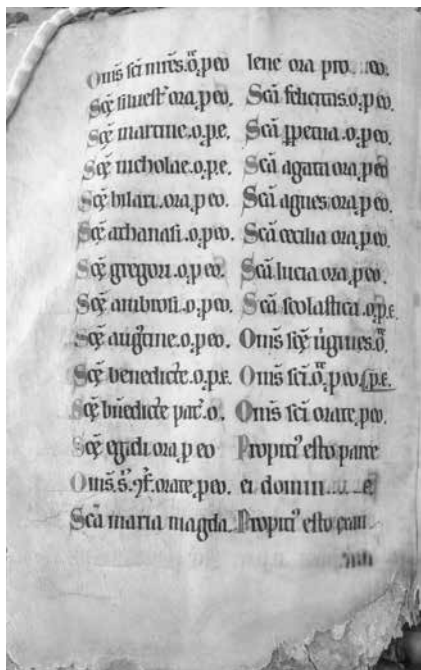 Om̄s sc̄i mr̄es. o. p eo
Sc̄e siluest' ora. p eo.
Sc̄e martine. o. p. e.
Sc̄e nicholae. o. p. e.
Sc̄e hilari. ora. p eo.
Sc̄e athanasi. o. p eo.
Sc̄e gregori. o. p eo.
Sc̄e ambrosi. o. p eo.
Sc̄e augustine. o. p eo.
Sc̄e benedicte. o. p. e.
Sc̄e bn̄edicte pat'. o.
Sc̄e egidi ora. p eo
Om̄s. s. ꝯf. orate. p eo.
Sc̄a maria magda
lene ora pro eo.
Sc̄a felicitas. o. p eo.
Sc̄a ꝑpetua. o. p eo.
Sc̄a agata ora. p eo
Sc̄a agnes ora. p eo.
Sc̄a cecilia ora. p eo.
Sc̄a lucia ora. p eo.
Sc̄a scolastica. o. p. e.
Om̄s sc̄e ūgines. o.
Om̄s sc̄i. o. p eo
Om̄s sc̄i orate. p eo.
Propiciꝰ esto parce
ei domin e
Propiciꝰ esto